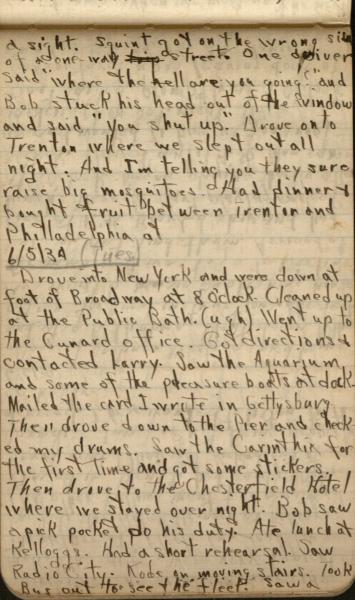 a sight. Squint got on the wrong side
of a one-way street. One driver
said "where the hell are you going", and
Bob stuck his head out of the window
and said "you shut up." Drove onto
Trenton where we slept out all
night. And I'm telling you they sure
raise big mosquitoes. Had dinner &
bought fruit between Trenton and
Philladelphia at
6/5/34 (Tues.
Drove into New York and were down at
foot of Broadway at 8 o'clock. Cleaned up
at the Public Bath. (ugh) Went up to
the Cunard office. Got directions &
contacted Larry. Saw the Aquarium
and some of the pleasure boats at dock.
Mailed the card I wrote in Gettysburg.
Then drove down to the Pier and check-
ed my drums. Saw the Carinthia for
the first time and got some stickers.
Then drove to the Chesterfield Hotel
where we stayed over night. Bob saw
a pick pocket do his duty. Ate lunch at
Kelloggs. Had a short rehearsal. Saw
Radio City. Rode on moving stairs. Took
Bus out to see the fleet. Saw a